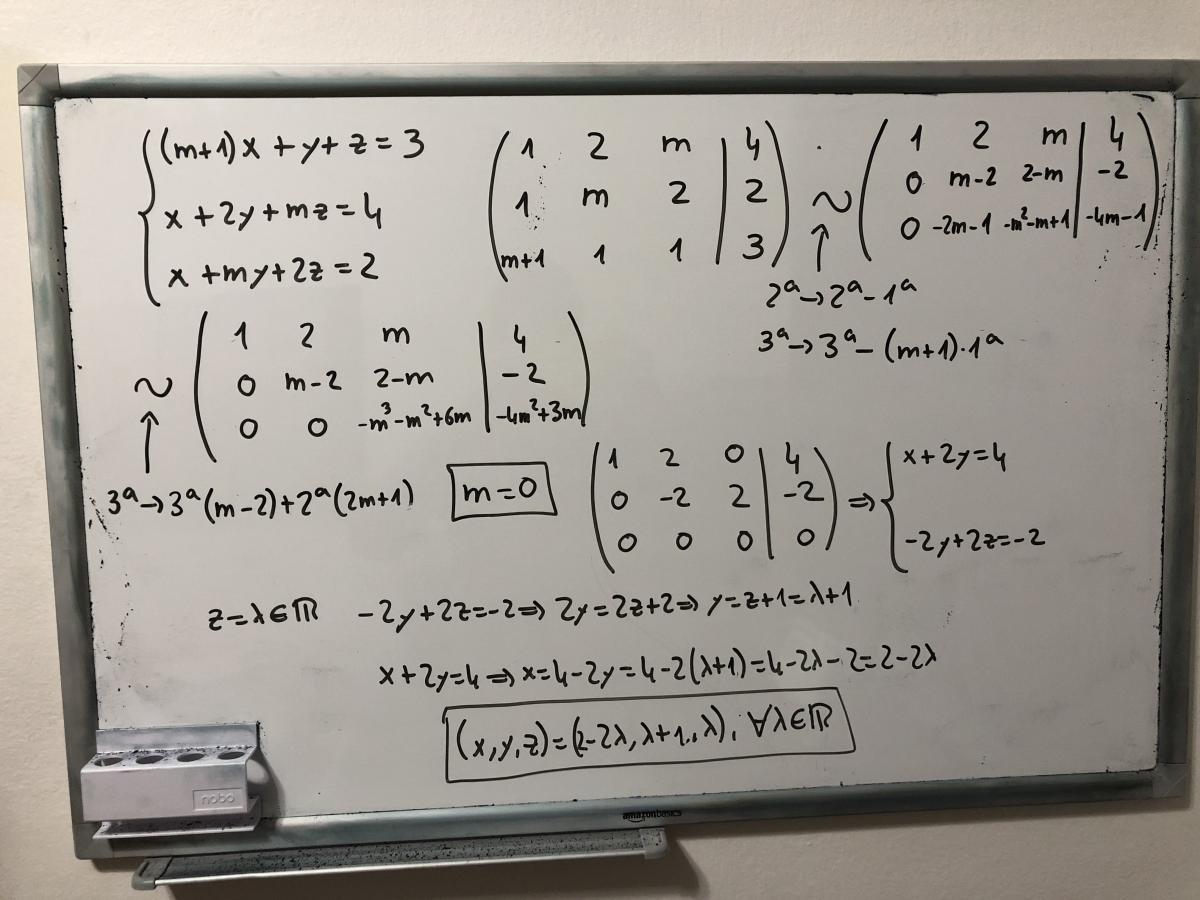 (m+1)x + y + z = 3
x + 2y + mz = 4
x + my + 2z = 2
1 2 m | 4
1 m 2 | 2
m+1 1 1 | 3
~
1 2 m | 4
0 m-2 2-m | -2
0 -2m-1 -m²-m+1 | -4m-1
↑
2ª→2ª-1ª
3ª→3ª-(m+1)·1ª
~
1 2 m | 4
0 m-2 2-m | -2
0 0 -m³-m²+6m | -4m²+3m
↑
3ª→3ª(m-2)+2ª(2m+1)
m=0
1 2 0 | 4
0 -2 2 | -2
0 0 0 | 0
⇒
x+2y=4
-2y+2z=-2
z=λ∈ℝ -2y+2z=-2⇒2y=2z+2⇒y=z+1=λ+1
x+2y=4⇒x=4-2y=4-2(λ+1)=4-2λ-2=2-2λ
(x,y,z)=(2-2λ, λ+1, λ), ∀λ∈ℝ
nobo
amazonbasics